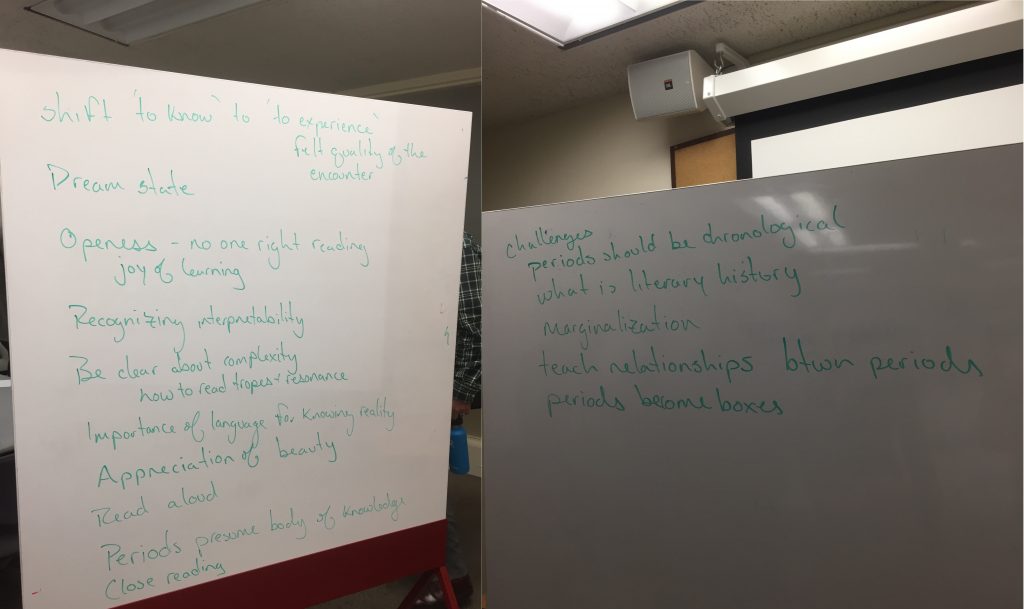 shift 'to know' to 'to experience'
felt quality of the
encounter
Dream state
Openess - no one right reading
joy of learning
Recognizing interpretability
Be clear about complexity
how to read tropes + resonance
Importance of language for knowing reality
Appreciation of beauty
Read aloud
Periods presume body of knowledge
Close reading
challenges
periods should be chronological
what is literary history
marginalization
teach relationships btwn periods
periods become boxes